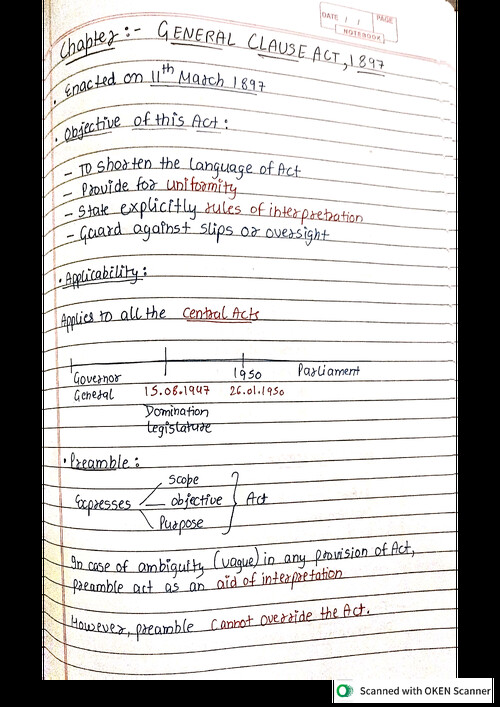 DATE / / PAGE
NOTEBOOK
Chapter :- GENERAL CLAUSE ACT, 1897
• Enacted on 11th March 1897
• Objective of this Act :
- To shorten the language of Act
- Provide for uniformity
- State explicitly rules of interpretation
- Guard against slips or oversight
• Applicability :
Applies to all the Central Acts
Governor 1950 Parliament
General 15.08.1947 26.01.1950
Domination
legislature
• Preamble :
Scope
Expresses objective Act
Purpose
In case of ambiguity (vague) in any provision of Act,
preamble act as an aid of interpretation
However, preamble cannot override the Act.
Scanned with OKEN Scanner